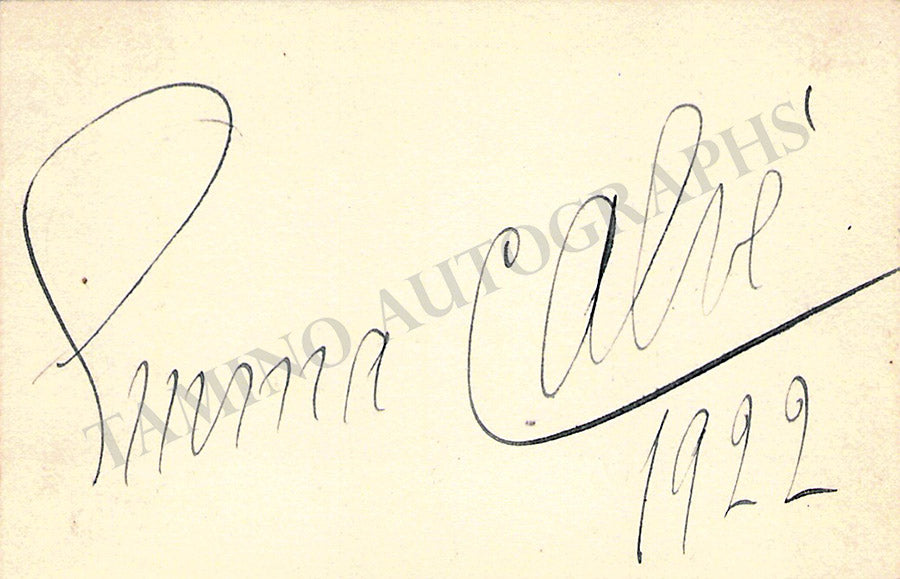 Emma Calvé
1922
TAMINO AUTOGRAPHS